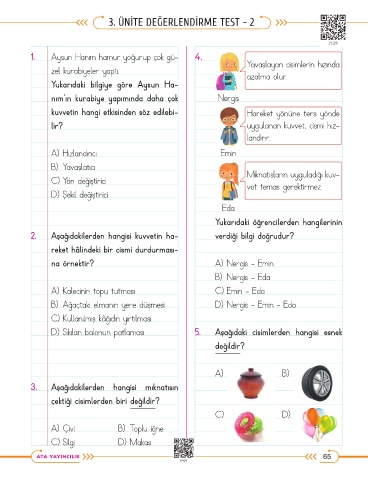 3. ÜNİTE DEĞERLENDİRME TEST - 2
1. Aysun Hanım hamur yoğurup çok gü-
zel kurabiyeler yaptı.
Yukarıdaki bilgiye göre Aysun Ha-
nım'ın kurabiye yapımında daha çok
kuvvetin hangi etkisinden söz edilebi-
lir?
A) Hızlandırıcı
B) Yavaşlatıcı
C) Yön değiştirici
D) Şekil değiştirici
2. Aşağıdakilerden hangisi kuvvetin ha-
reket hâlindeki bir cismi durdurması-
na örnektir?
A) Kalecinin topu tutması
B) Ağaçtaki elmanın yere düşmesi
C) Kullanılmış kâğıdın yırtılması
D) Sıkılan balonun patlaması
3. Aşağıdakilerden hangisi mıknatısın
çektiği cisimlerden biri değildir?
A) Çivi B) Toplu iğne
C) Silgi D) Makas
4.
Yavaşlayan cisimlerin hızında
azalma olur.
Nergis
Hareket yönüne ters yönde
uygulanan kuvvet, cismi hız-
landırır.
Emin
Mıknatısların uyguladığı kuv-
vet temas gerektirmez.
Eda
Yukarıdaki öğrencilerden hangilerinin
verdiği bilgi doğrudur?
A) Nergis - Emin
B) Nergis - Eda
C) Emin - Eda
D) Nergis - Emin - Eda
5. Aşağıdaki cisimlerden hangisi esnek
değildir?
A) B)
C) D)
ATA YAYINCILIK
65